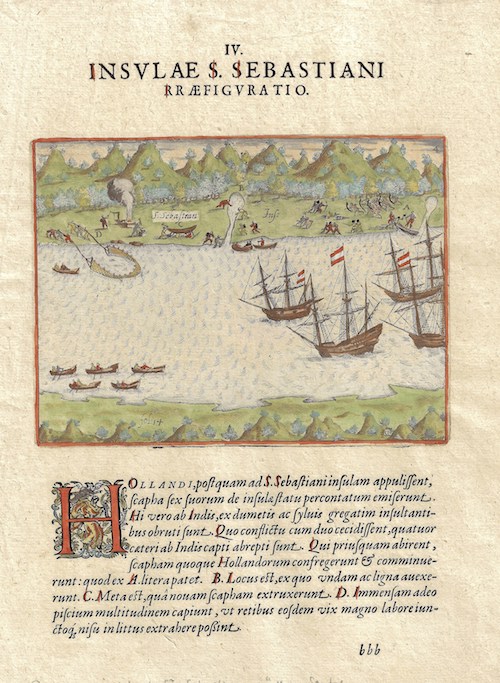 IV.
INSVLAE S. SEBASTIANI
RRÆFIGVRATIO.
S. Sebastiani
Inſ
HOLLANDI, poſtquam ad S. Sebaſtiani inſulam appuliſſent,
ſcapha ſex ſuorum de inſulæ ſtatu percontatum emiſerunt.
Hi vero ab Indis, ex dumetis ac ſyluis gregatim inſultanti-
bus obruti ſunt. Quo conflictu cum duo cecidiſſent, quatuor
cæteri ab Indis capti abrepti ſunt. Qui priuſquam abirent,
ſcapham quoque Hollandorum confregerunt & comminue-
runt: quod ex A litera patet. B. Locus eſt, ex quo vndam ac ligna auexe-
runt. C. Meta eſt, quâ nouam ſcapham extruxerunt. D. Immenſam adeo
piſcium multitudinem capiunt, vt retibus eoſdem vix magno labore iun-
ctoq́; niſu in littus extrahere poßint.
bbb